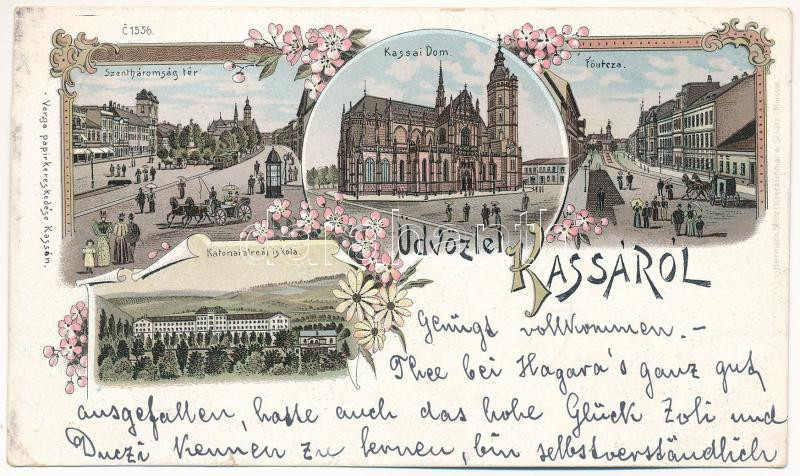 Č 1536.
Szentháromság tér
Kassai Dom.
Főutcza.
Varga papirkereskedése Kassán.
Katonai alreál iskola.
Üdvözlet
KASSÁRÓL
Genügt vollkommen. –
Thee bei Hagara's ganz gut
ausgefallen, hatte auch das hohe Glück Zoli und
Duczi kennen zu lernen, bin selbstverständlich